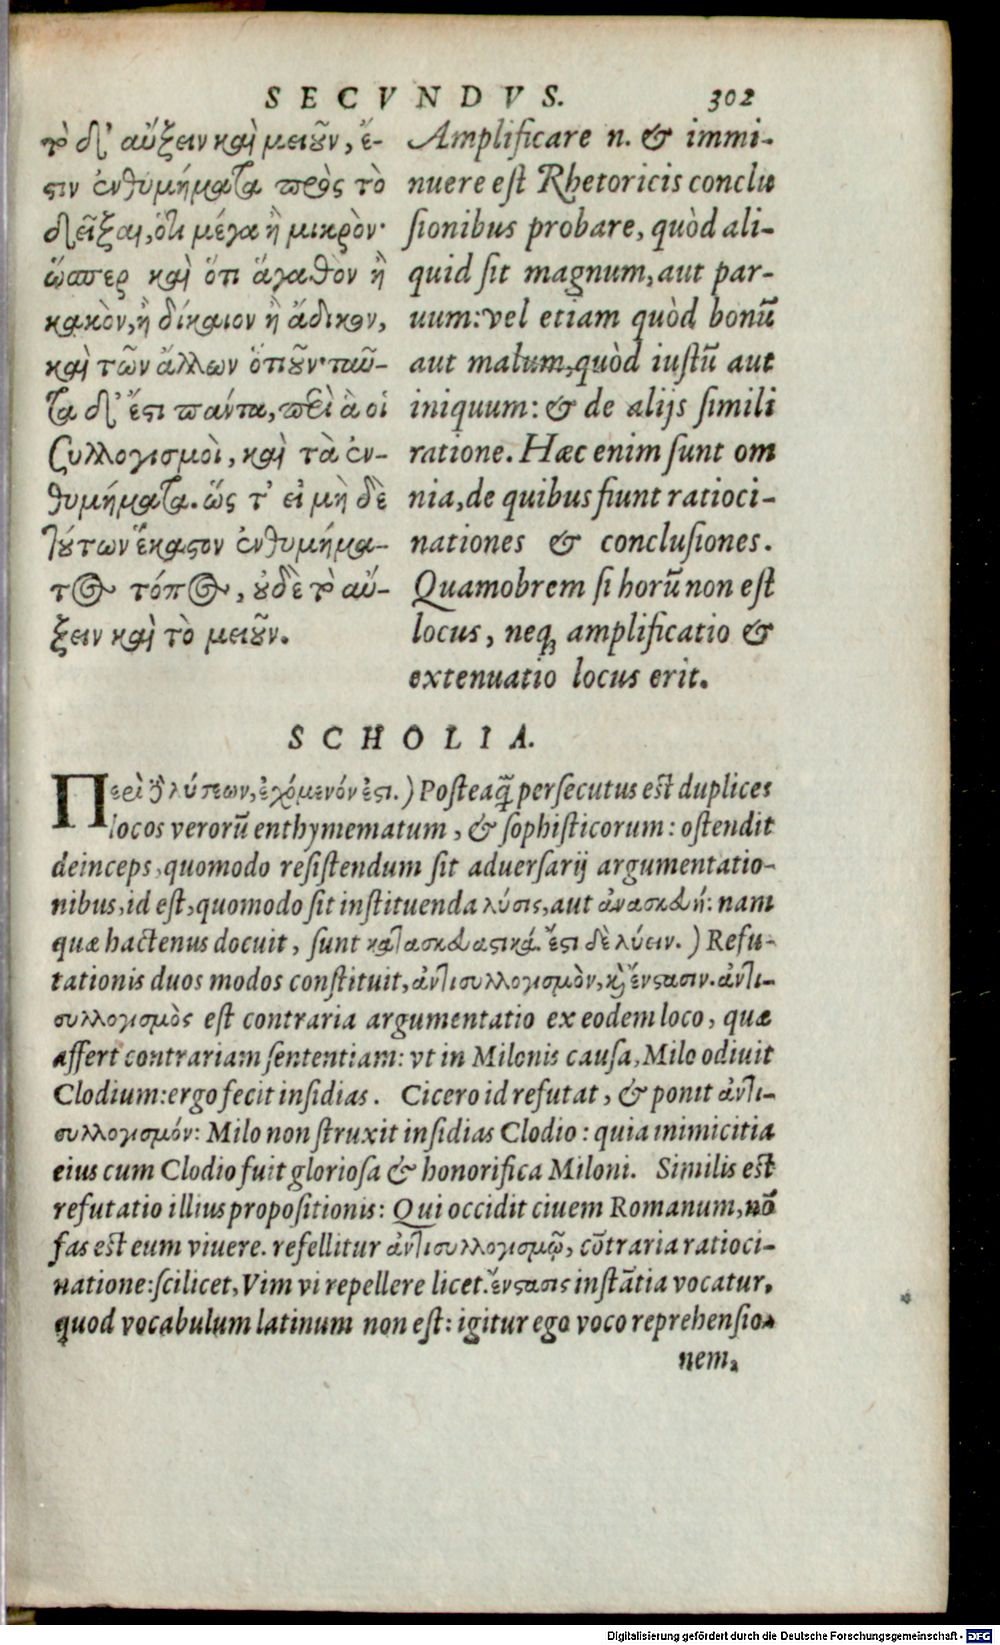 SECVNDVS. 302
τὸ δ' αὔξειν καὶ μειοῦν, ἔ-
ςιν ἐνθυμήματα πρὸς τὸ
δεῖξαι, ὅτι μέγα ἢ μικρὸν·
ὥσπερ καὶ ὅτι ἄγαθὸν ἢ
κακὸν, ἢ δίκαιον ἢ ἄδικον,
καὶ τῶν ἄλλων ὁπ͂ουν· ταῦ-
τα δ' ἔςι πάντα, περὶ ἃ οἱ
συλλογισμοὶ, καὶ τὰ ἐν-
θυμήματα. ὥς τ' εἰ μὴ δὲ
τούτων ἕκαςον ἐνθυμήμα-
τος τόπος, οὐδὲ τὸ αὔ-
ξειν καὶ τὸ μειοῦν.
Amplificare n. & immi-
nuere est Rhetoricis conclu
sionibus probare, quòd ali-
quid sit magnum, aut par-
uum: vel etiam quòd bonũ
aut malum, quòd iustũ aut
iniquum: & de alijs simili
ratione. Hæc enim sunt om
nia, de quibus fiunt ratioci-
nationes & conclusiones.
Quamobrem si horũ non est
locus, neq; amplificatio &
extenuatio locus erit.
SCHOLIA.
Περὶ ϳ λύσεων, ἐχόμενόν ἐςι.) Posteaq̃ persecutus est duplices
locos verorũ enthymematum, & sophisticorum: ostendit
deinceps, quomodo resistendum sit adversarij argumentatio-
nibus, id est, quomodo sit instituenda λύσις, aut ἀνασκευή: nam
quæ hactenus docuit, sunt κατασκευαςικά. ἔςι δὲ λύειν.) Refu-
tationis duos modos constituit, ἀντισυλλογισμὸν, κὶ ἔνςασιν. ἀντι-
συλλογισμὸς est contraria argumentatio ex eodem loco, quæ
affert contrariam sententiam: vt in Milonis causa, Milo odiuit
Clodium: ergo fecit insidias. Cicero id refutat, & ponit ἀντι-
συλλογισμόν: Milo non struxit insidias Clodio: quia inimicitia
eius cum Clodio fuit gloriosa & honorifica Miloni. Similis est
refutatio illius propositionis: Qui occidit ciuem Romanum, nõ
fas est eum viuere. refellitur ἀντισυλλογισμῷ, cõtraria ratioci-
natione: scilicet, Vim vi repellere licet. ἔνςασις instãtia vocatur,
quod vocabulum latinum non est: igitur ego voco reprehensio-
nem,
Digitalisierung gefördert durch die Deutsche Forschungsgemeinschaft - DFG